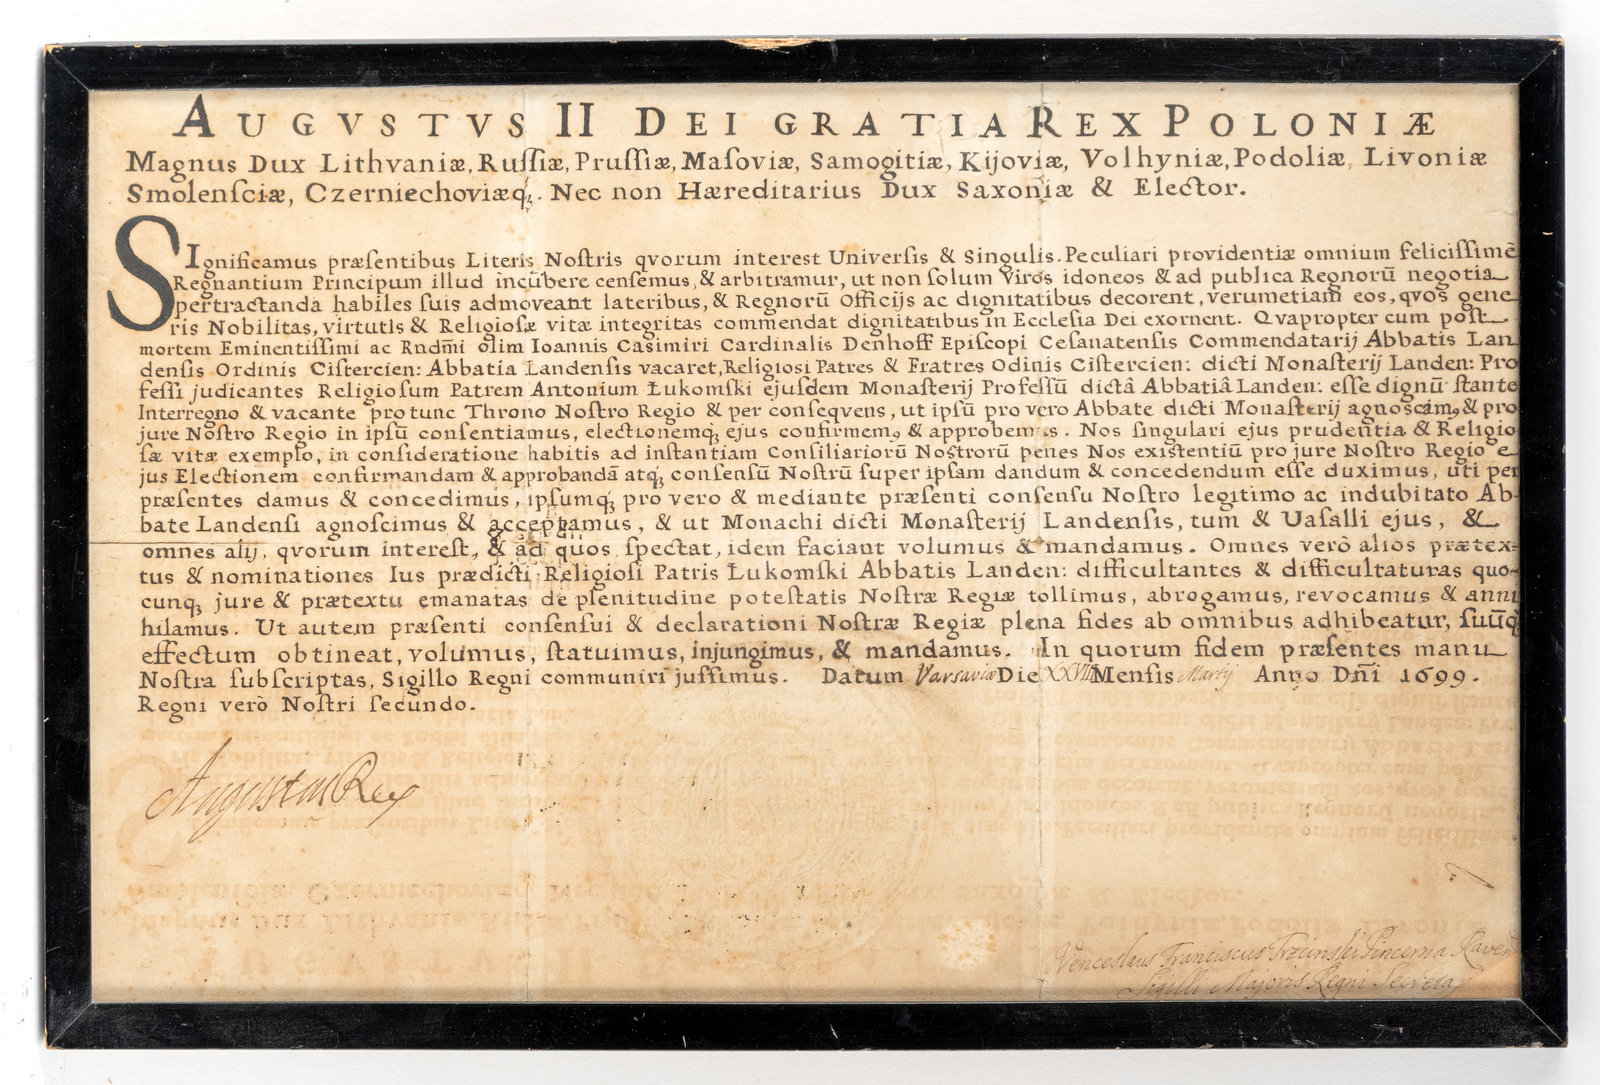 AUGVSTVS II DEI GRATIA REX POLONIÆ
Magnus Dux Lithvaniæ, Ruſſiæ, Pruſſiæ, Maſoviæ, Samogitiæ, Kijoviæ, Volhyniæ, Podoliæ, Livoniæ
Smolenſciæ, Czerniechoviæq;. Nec non Hæreditarius Dux Saxoniæ & Elector.
SIgnificamus præſentibus Literis Noſtris qvorum interest Univerſis & Singulis. Peculiari providentiæ omnium feliciſſimē
Regnantium Principum illud incūbere cenſemus, & arbitramur, ut non ſolum Viros idoneos & ad publica Regnorū negotia
pertractanda habiles ſuis admoveant lateribus, & Regnorū Officijs ac dignitatibus decorent, verumetiam eos, qvos gene
ris Nobilitas, virtutis & Religioſæ vitæ integritas commendat dignitatibus in Eccleſia Dei exornent. Qvapropter cum poſt
mortem Eminentiſſimi ac Rndm̄i olim Ioannis Casimiri Cardinalis Denhoff Epiſcopi Ceſanatensis Commendatarij Abbatis Lan
denſis Ordinis Ciſtercien: Abbatia Landenſis vacaret, Religioſi Patres & Fratres Odinis Ciſtercien: dicti Monaſterij Landen: Pro
feſſi judicantes Religioſum Patrem Antonium Łukomſki ejuſdem Monaſterij Profeſſū dictâ Abbatiâ Landen: eſſe dignū ſtante
Interregno & vacante pro tunc Throno Noſtro Regio & per conſeqvens, ut ipſū pro vero Abbate dicti Monaſterij agnoscim9 & pro
jure Noſtro Regio in ipſū conſentiamus, electionemq; ejus confirmem9 & approbemus. Nos ſingulari ejus prudentia & Religio
ſæ vitæ exemplo, in conſideratione habitis ad inſtantiam Conſiliariorū Noſtrorū penes Nos exiſtentiū pro jure Noſtro Regio e
jus Electionem confirmandam & approbandā atq; conſenſū Noſtrū ſuper ipſam dandum & concedendum eſſe duximus, uti per
præſentes damus & concedimus, ipſumq; pro vero & mediante præſenti conſenſu Noſtro legitimo ac indubitato Ab-
bate Landenſi agnoſcimus & acceptamus, & ut Monachi dicti Monaſterij Landenſis, tum & Uaſalli ejus, &
omnes alij, qvorum intereſt, & ad quos ſpectat, idem faciant volumus & mandamus. Omnes verò alios prætex-
tus & nominationes Ius prædicti Religioſi Patris Łukomſki Abbatis Landen: difficultantes & difficultaturas quo-
cunq; jure & prætextu emanatas de plenitudine poteſtatis Noſtræ Regiæ tollimus, abrogamus, revocamus & anni
hilamus. Ut autem præſenti conſenſui & declarationi Noſtræ Regiæ plena fides ab omnibus adhibeatur, ſuūq;
effectum obtineat, volumus, ſtatuimus, injungimus, & mandamus. In quorum fidem præſentes manu
Noſtra ſubſcriptas, Sigillo Regni communiri juſſimus. Datum Varsaviæ Die XXVII Mensis Martij Anno Dn̄i 1699.
Regni verò Noſtri ſecundo.
Augustus Rex
Venceslaus Franciscus Trzcinski Pincerna Raven
Sigilli Majoris Regni Secreta